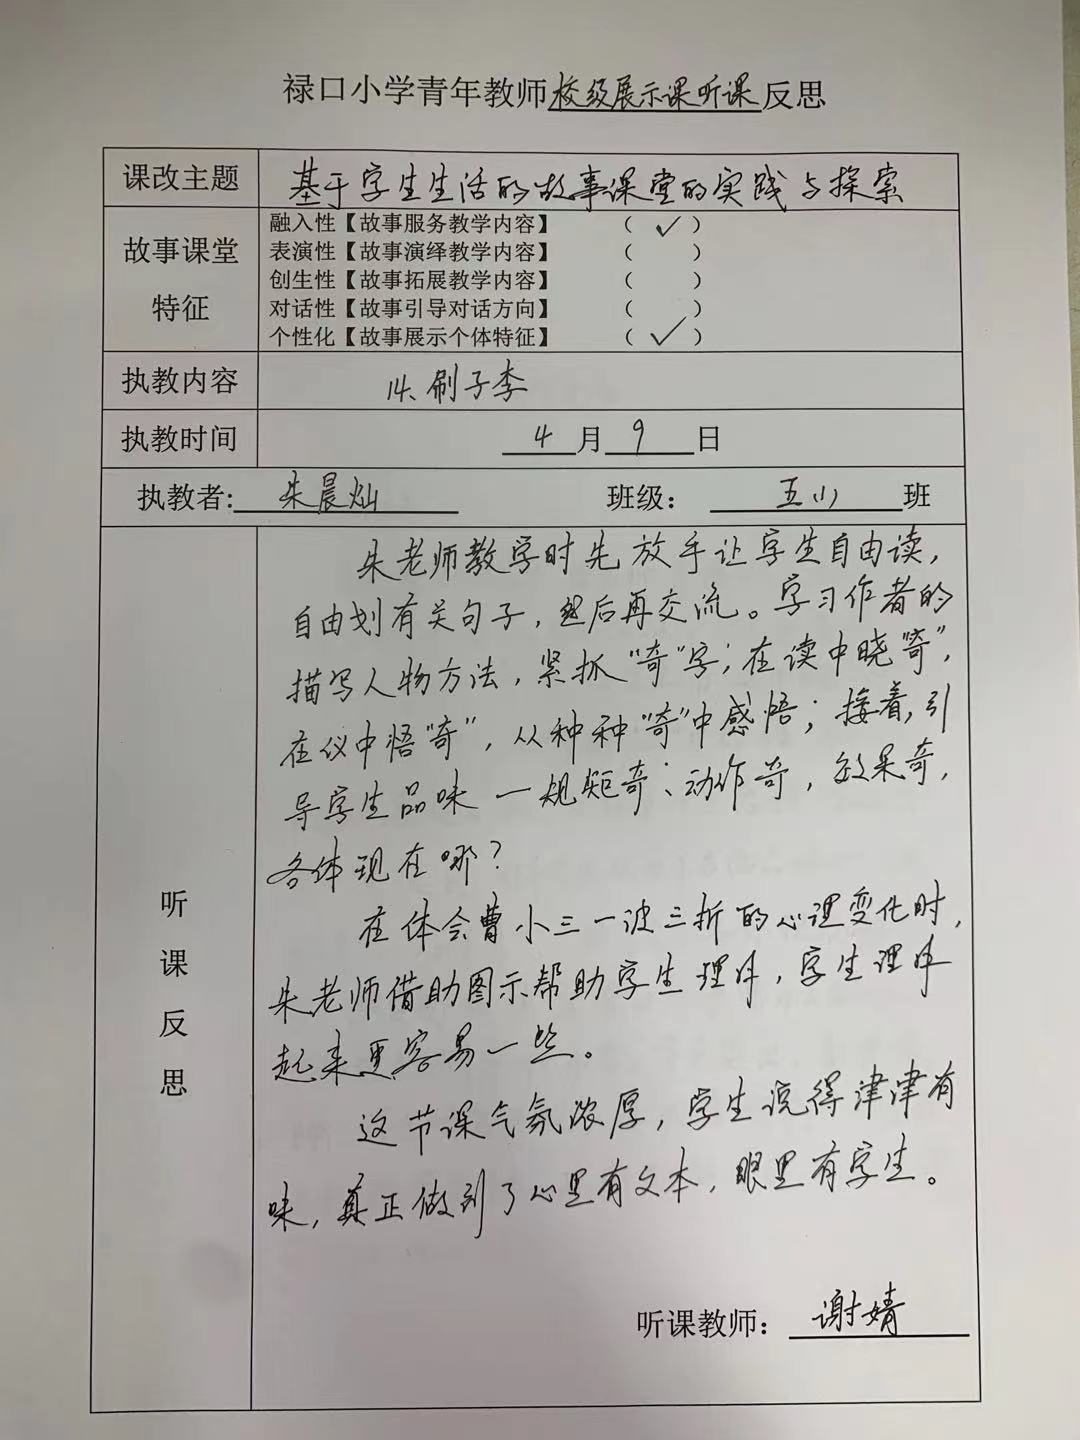 禄口小学青年教师校级展示课听课反思
课改主题 基于学生生活的故事课堂的实践与探索
故事课堂特征
融入性【故事服务教学内容】 （ ✓ ）
表演性【故事演绎教学内容】 （ ）
创生性【故事拓展教学内容】 （ ）
对话性【故事引导对话方向】 （ ）
个性化【故事展示个体特征】 （ ✓ ）
执教内容 14、刷子李
执教时间 4 月 9 日
执教者: 朱晨灿 班级： 五(1) 班
听课反思
朱老师教学时先放手让学生自由读，
自由划有关句子，然后再交流。学习作者的
描写人物方法，紧抓“奇”字；在读中晓“奇”，
在议中悟“奇”，从种种“奇”中感悟；接着，引
导学生品味一规矩奇、动作奇，效果奇，
各体现在哪？
在体会曹小三一波三折的心理变化时，
朱老师借助图示帮助学生理解，学生理解
起来更容易一些。
这节课气氛浓厚，学生说得津津有
味，真正做到了心里有文本，眼里有学生。
听课教师： 谢婧